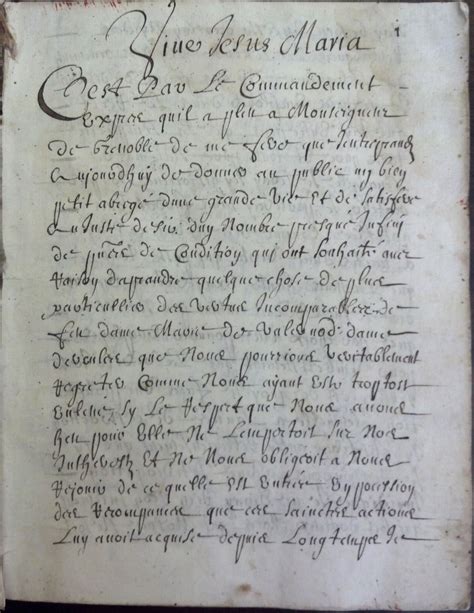 Vive Jesus Maria 1
C'est Par Le Commandement
expres quil a pleu a Monseigneur
de Grenoble de me fere que Jentreprand
aujourdhuy de donner au public un bien
petit abregé dune grande vie Et de satisfere
au Juste desir duy Nombre presque Infiny
de de Condition qui ont souhaité avec
Raison daprandre quelque chose de plus
particullier des vertus Incomparables de
feu dame Marie de Valernod dame
que Nous pourrions veritablement
Regreter Comme Nous ayant esté trop tost
enlevé sy Le Respect que Nous avons
heu pour Elle Ne Lemportoit sur Nos
Intherestz Et Ne Nous obligeoit a Nous
Rejouir de ce quelle Est Entrée en possession
des Recompances que ces sainctes actions
Luy avoit acquise depuis Longtemps Je